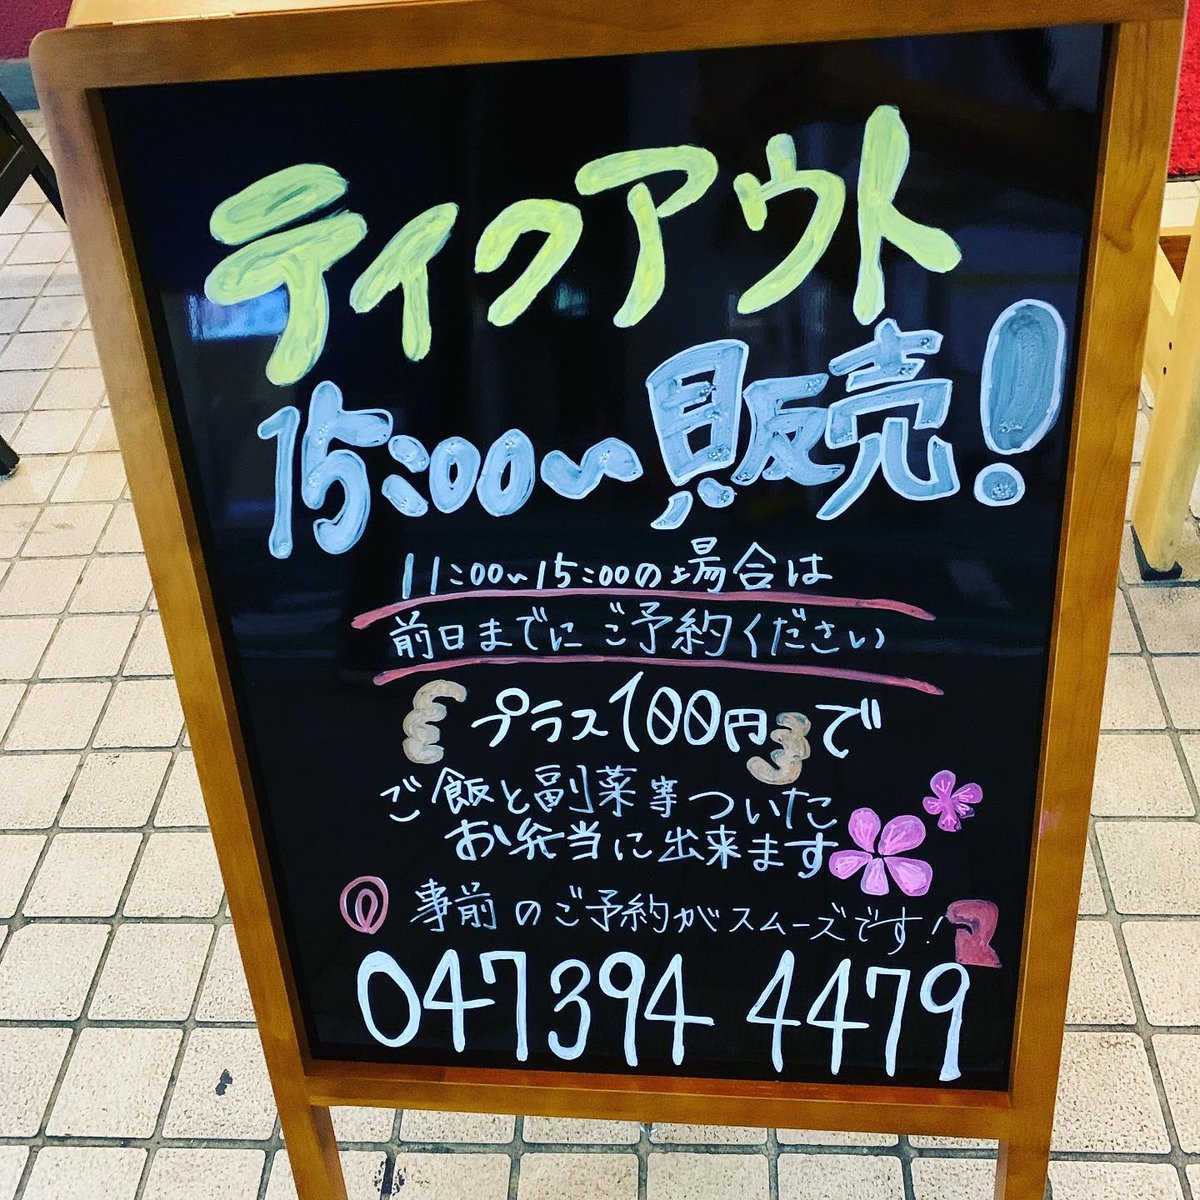 ティクアウト
15:00〜販売!
11:00〜15:00の場合は
前日までにご予約ください
プラス100円で
ご飯と副菜等ついた
お弁当に出来ます
事前のご予約がスムーズです!
047 394 4479